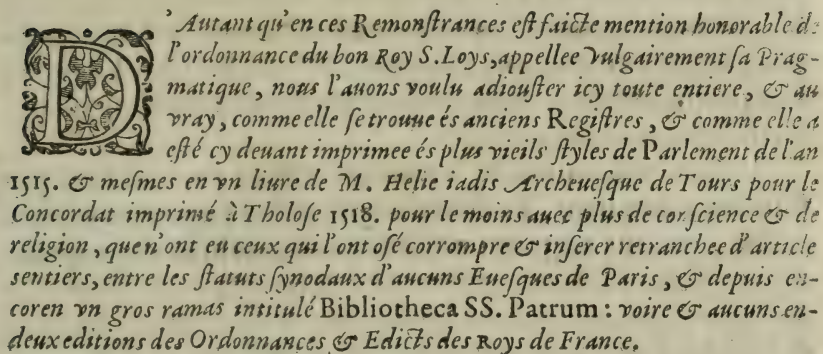 D'Autant qu'en ces Remonſtrances eſt faicte mention honorable de
l'ordonnance du bon Roy S. Loys, appellee vulgairement ſa Prag-
matique, nous l'auons voulu adiouſter icy toute entiere, & au
vray, comme elle ſe trouue és anciens Regiſtres, & comme elle a
eſté cy deuant imprimee és plus vieils ſtyles de Parlement de l'an
1515. & meſmes en vn liure de M. Helie iadis Archeueſque de Tours pour le
Concordat imprimé à Tholoſe 1518. pour le moins auec plus de conſcience & de
religion, que n'ont eu ceux qui l'ont oſé corrompre & inſerer retranchee d'article
sentiers, entre les ſtatuts ſynodaux d'aucuns Eueſques de Paris, & depuis en-
coren vn gros ramas intitulé Bibliotheca SS. Patrum: voire & aucuns en-
deux editions des Ordonnances & Edicts des Roys de France.